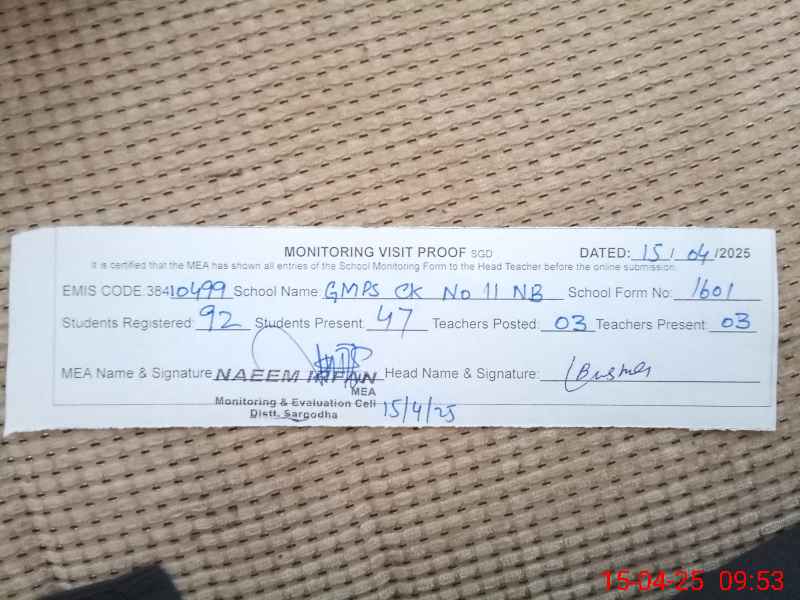 MONITORING VISIT PROOF SGD DATED: 15/04/2025
It is certified that the MEA has shown all entries of the School Monitoring Form to the Head Teacher before the online submission.
EMIS CODE.38410499 School Name: GMPS CK No 11 NB School Form No: 1601
Students Registered: 92 Students Present: 47 Teachers Posted: 03 Teachers Present: 03
MEA Name & Signature NAEEM IRFAN Head Name & Signature: Bushra
MEA
Monitoring & Evaluation Cell
Distt. Sargodha 15/4/25
15-04-25 09:53